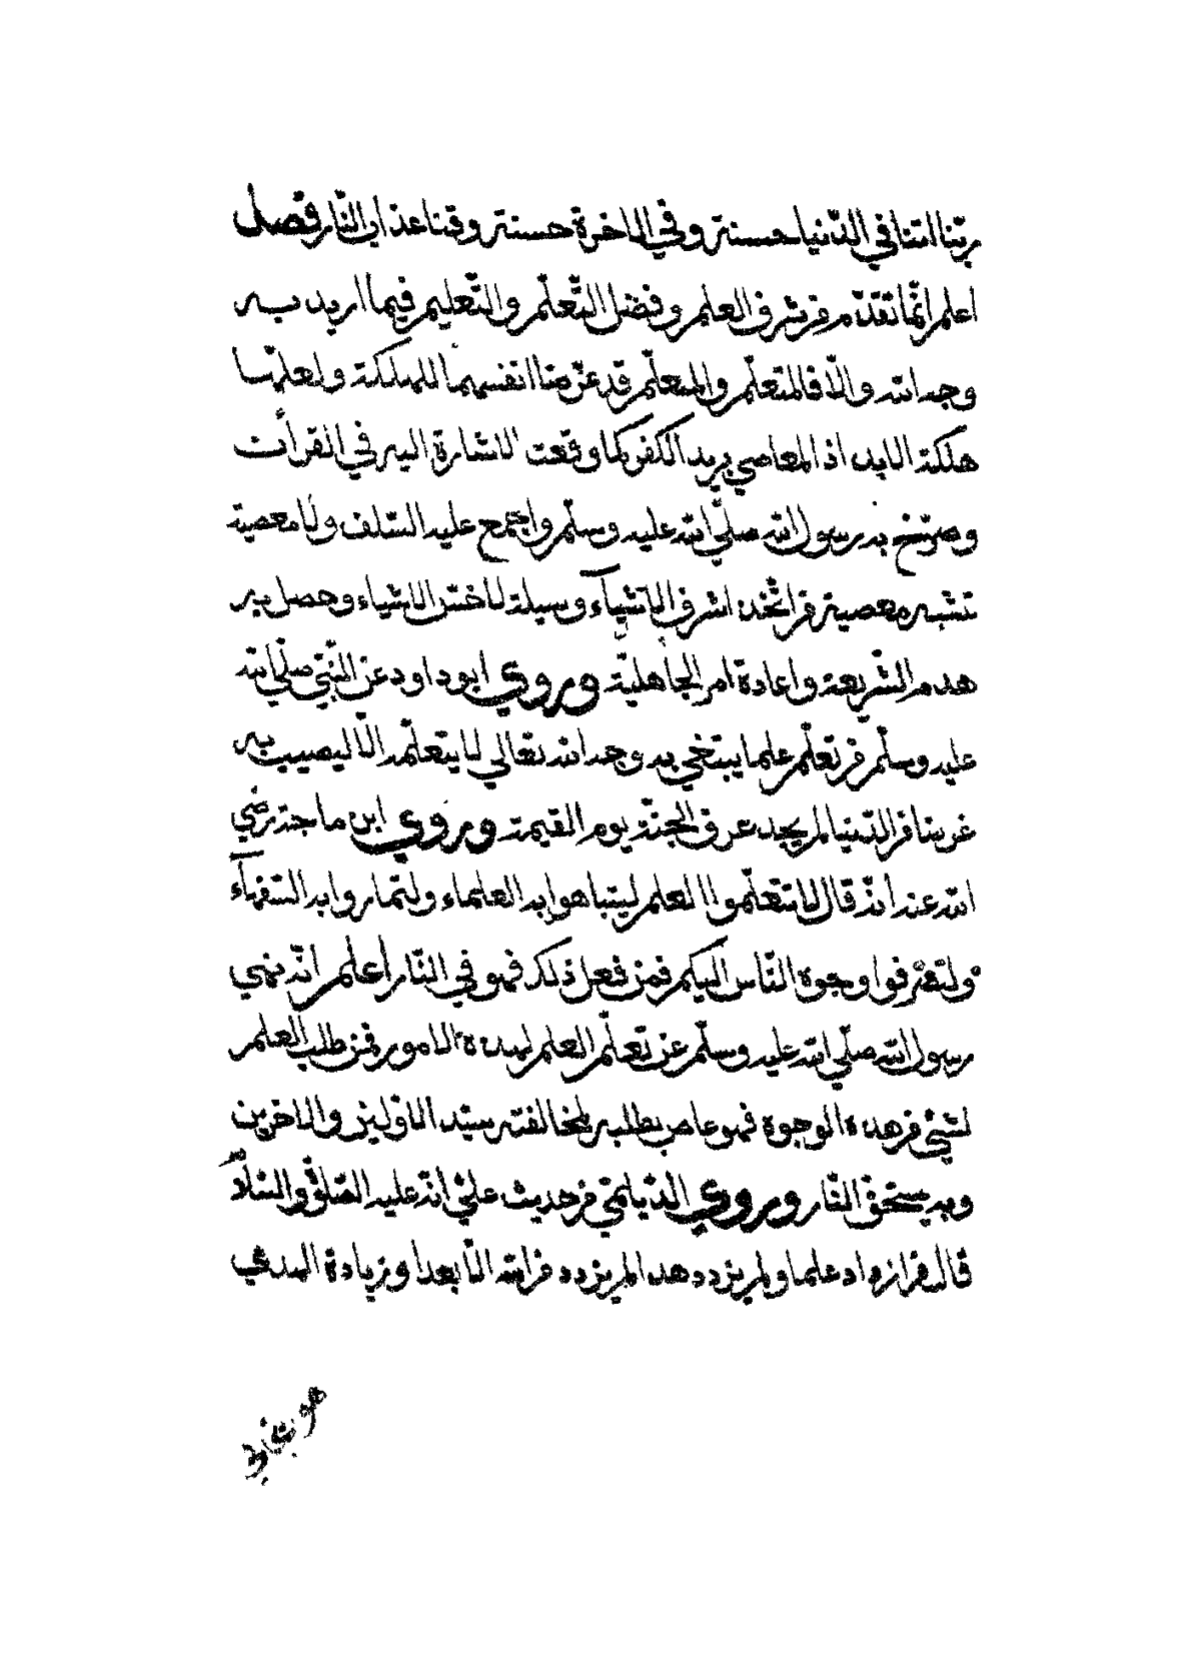 ربّنا اتنا في الدّنيا حسنة وفي الاخرة حسنة وقنا عذاب النّار فصل
اعلم انّما تقدّم من شرف العلم وفضل التّعلّم والتّعليم فيما اريد به
وجه الله والّا فالمتعلّم والمعلّم قد عرّضا انفسهما للهلكة ولعلّها
هلكة الابد اذ المعاصي بريد الكفر كما وقعت الاشارة اليه في القرأن
وصرّح به رسول الله صلّي الله عليه وسلّم واجمع عليه السّلف ولا معصية
تشبه معصية من اتّخذ اشرف الاشيآء وسيلة لاخسّ الاشياء وحصل به
هدم الشّريعة واعادة امر الجاهليّة وروي ابو داود عن النّبيّ صلّي الله
عليه وسلّم من تعلّم علما يبتغي به وجه الله تعالي لا يتعلّمه الّا ليصيب به
غرضا من الدّنيا لم يجد عرف الجنّة يوم القيمة وروي ابن ماجة رضي
الله عنه أنّه قال لا تتعلّموا العلم ليتباهوا به العلماء ولتماروا به السّفهآء
ولتصرفوا وجوه النّاس اليكم فمن فعل ذلك فهو في النّار أعلم انّه نهي
رسول الله صلّي الله عليه وسلّم عن تعلّم العلم لهذه الامور فمن طلب العلم
لشيئ من هذه الوجوه فهو عاص بطلبه لمخالفته سيّد الاوّلين والاخرين
وبه يستحقّ النّار وروي الديلمي من حديث عليّ الله عليه الصّلوة والسّلام
قال من ازداد علما ولم يزدد هدا لم يزدد من الله الّا بعدا وزيادة الهدي